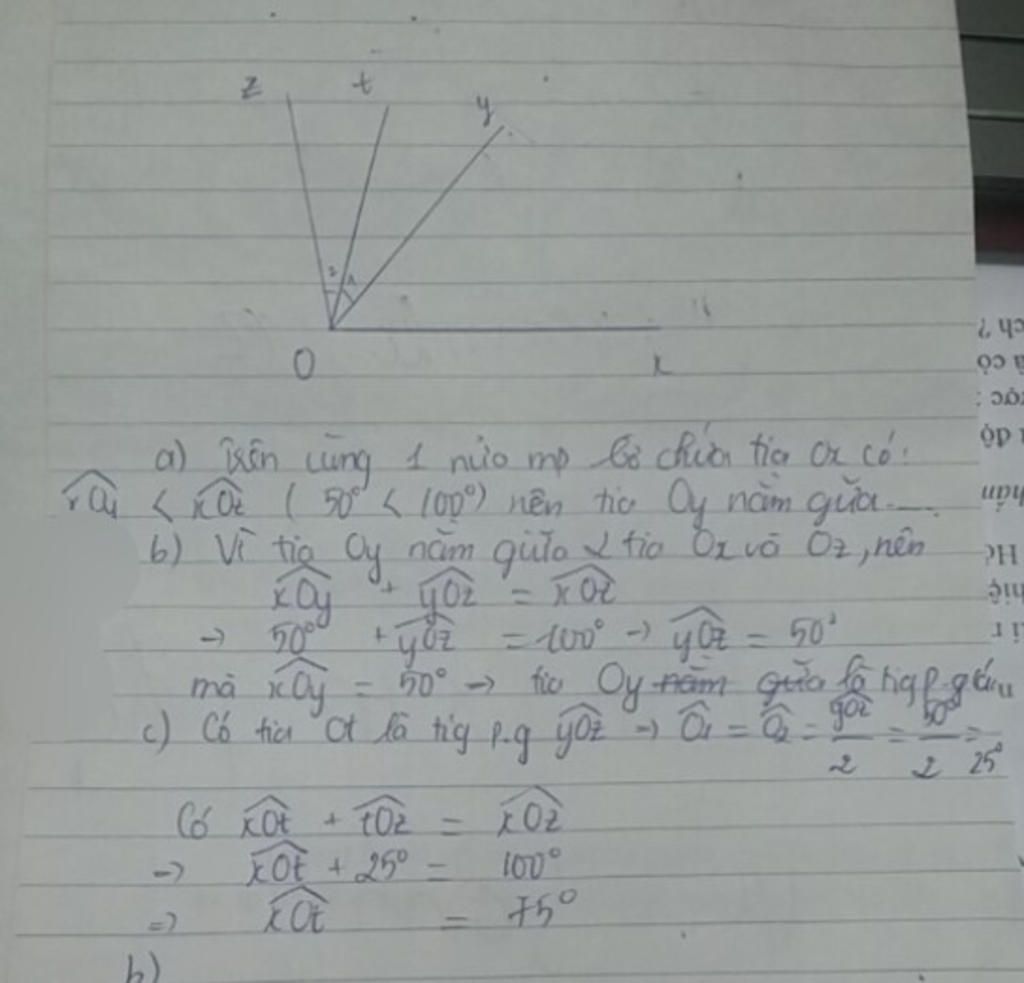 z t y
2 1
O x
a) Trên cùng 1 nửa mp bờ chứa tia Ox có:
xOy < xOz ( 50° < 100° ) nên tia Oy nằm giữa....
b) Vì tia Oy nằm giữa 2 tia Ox và Oz, nên
xOy + yOz = xOz
→ 50° + yOz = 100° → yOz = 50°
mà xOy = 50° → tia Oy nằm giữa là tia p.giác
c) Có tia Ot là tia p.g yOz → O1 = O2 = yOz/2 = 50°/2 = 25°
Có xOt + tOz = xOz
→ xOt + 25° = 100°
=> xOt = 75°
b)
ch ?
à có
ược :
độ